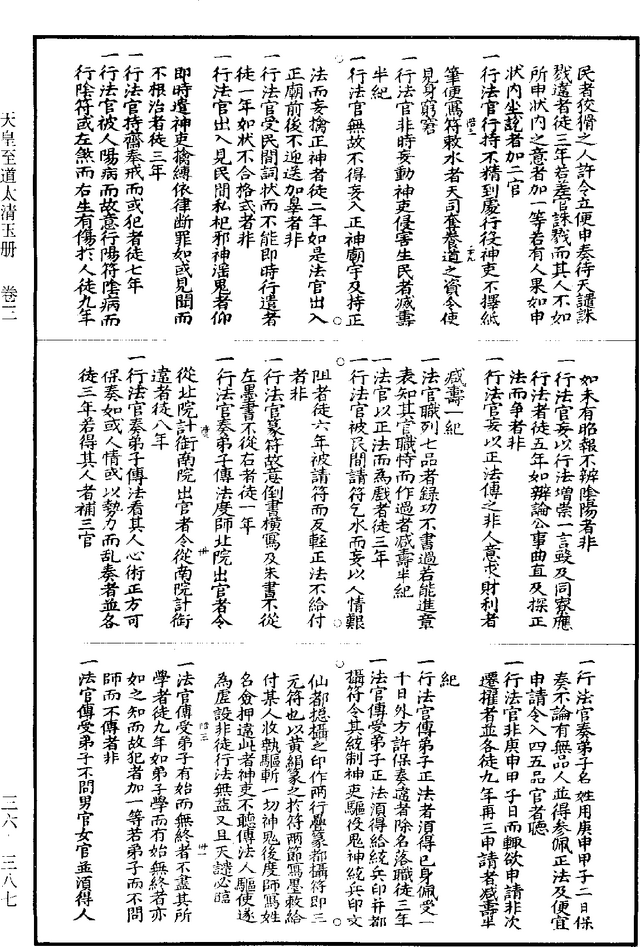 民者狡猾之人許令立便申奏待天譴誅
戮違者徒三年若差官誅戮而其人不如
所申狀內之意者加一等若有人果如申
狀內坐說者加二官
一行法官行持不精到處行役神吏不擇紙
筆便寫符救水者天司奪養道之資令使
見身窮窘
一行法官非時妄動神吏侵害生民者減壽
半紀
一行法官無故不得妄入正神廟宇及持正
法而妄擒正神者徒二年如是法官出入
正廟前後不迎送加辠者非
一行法官受民間詞狀而不能即時行遣者
徒一年如狀不合格式者非
一行法官出入見民間私祀邪神淫鬼者仰
即時遣神吏擒縛依律斷罪如或見聞而
不根治者徒三年
一行法官持齋奏戒而或犯者徒七年
一行法官被人陽病而故意行陽符陰病而
行陰符或左煞而右生有傷於人徒九年
如未有昭報不辨陰陽者非
一行法官妄以行法增崇一言毀及同寮應
行法者徒五年如辨論公事曲直及探正
法而爭者非
一行法官妄以正法傳之非人意求財利者
減壽一紀
一法官職列七品者錄功不書過若能進章
表知其官職恃而作過者減壽半紀
一法官以正法而為戲者徒三年
一行法官被民間請符乞水而妄以人情艱
阻者徒六年被請符而反輕正法不給付
者非
一行法官篆符故意倒書橫寫及朱書不從
左墨書不從右者徒一年
一行法官奏弟子傳法度師北院出官者令
從北院計銜南院出官者令從南院計銜
違者徒八年
一行法官奏弟子傳法看其人心術正方可
保奏如或人情或以勢力而亂奏者並各
徒三年若得其人者補三官
一行法官奏弟子名姓用庚申甲子二日保
奏不論有無品人並得參佩正法及便宜
申請令入四五品官者聽
一行法官非庚申甲子日而輒欲申請非次
遷擢者並各徒九年再三申請者減壽半
紀
一行法官傳弟子正法者須得已身佩受一
十日外方許保奏違者除名落職徒三年
一法官傳受弟子正法須得給統兵印并都
攝符令其統制神吏驅役鬼神統兵印文
仙都摠攝之印作兩行疊篆都攝符即三
元符也以黃絹篆之於符兩節寫墨敕給
付某人收執驅斬一切神鬼後度師寫姓
名僉押違此者神吏不聽傳法人驅使遂
為虛設非徒行法無益又且天譴必臨
一法官傳受弟子有始而無終者不盡其所
學者徒九年如弟子學而有始無終者亦
如之知而故犯者加一等若弟子而不問
師而不傳者非
一法官傳受弟子不問男官女官並須得人
天皇至道太清玉册　卷三
三六·三八七